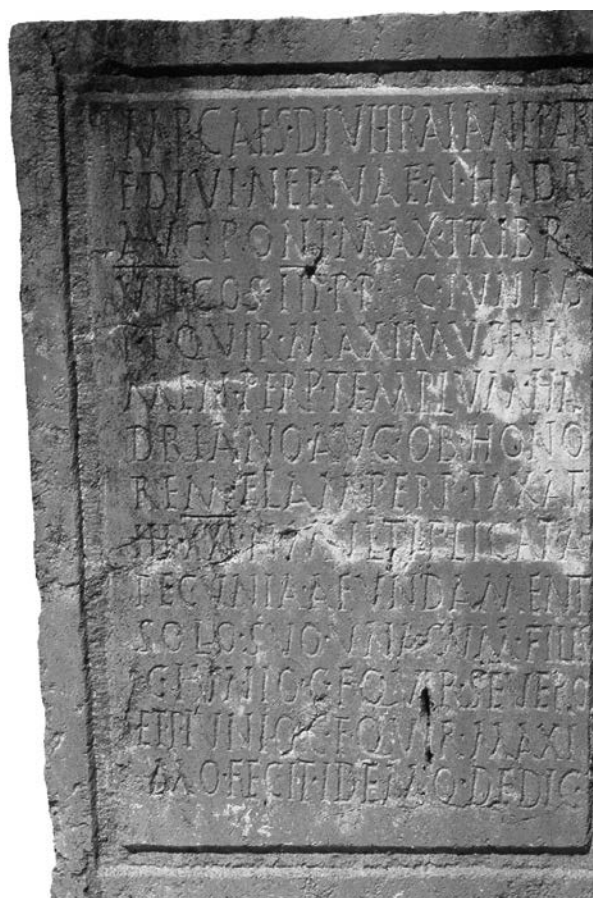 IMP·CAES·DIVI·TRAIANI·PAR
F·DIVI·NERVAE·N·HADR
AVG·PONT·MAX·TRIB·P·
VII·COS·III·P·P· C·IVNIVS
F·QVIR·MAXIMVS·FLA
MEN·PERP·TEMPLVM·HA
DRIANO·AVG·OB·HONO
REM·FLAM·PERP·TAXAT·
XXI·MVLTIPLICATA
PECVNIA·A·FVNDAMENT
SOLO·SVO·VNA·CVM·FILI
C·IVNIO·C·F·QVIR·SEVERO
ET·IVNIO·C·F·QVIR·MAXI
MO·FECIT·IDEMQ·DEDIC